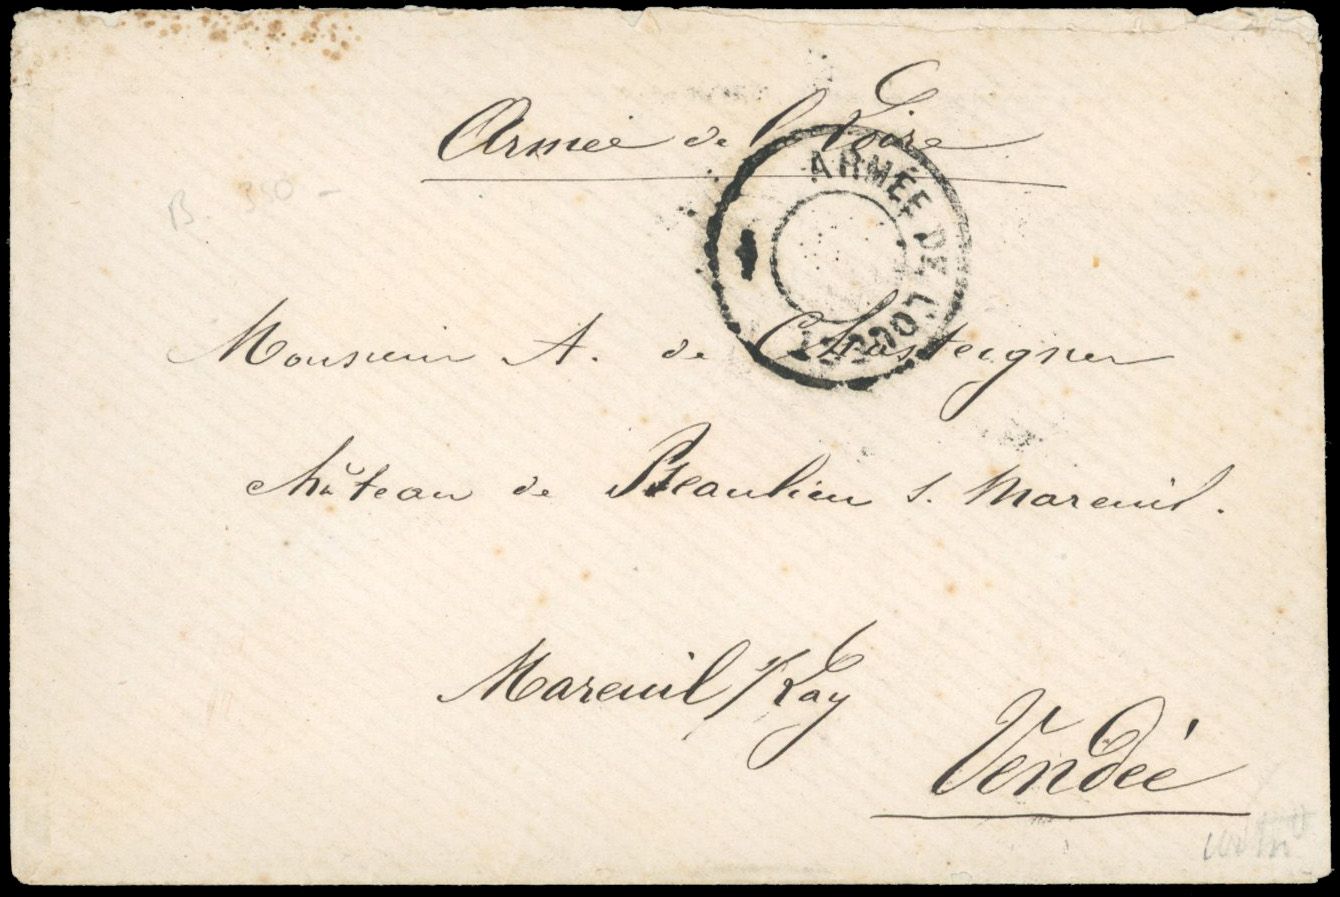 Armée de la Loire
ARMÉE DE L'OUEST
B. 350 -
Monsieur A. de Chasteigner
château de Beaulieu s. Mareuil.
Mareuil / Lay
Vendée